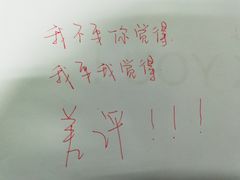 我不要你觉得
我要我觉得
差评!!!